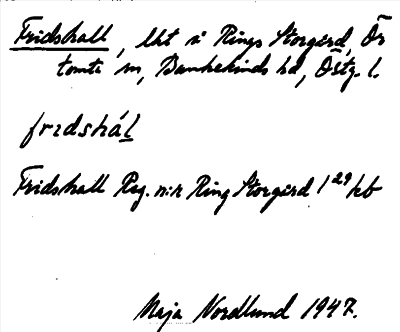 Fridshall, lht i Rings Storgård, Ör
tomta sn, Bankekinds hd, Östg. l.
fridshál
Fridshall Reg. n:r Ring Storgård 1²⁹ kb
Maja Nordlund 1947.